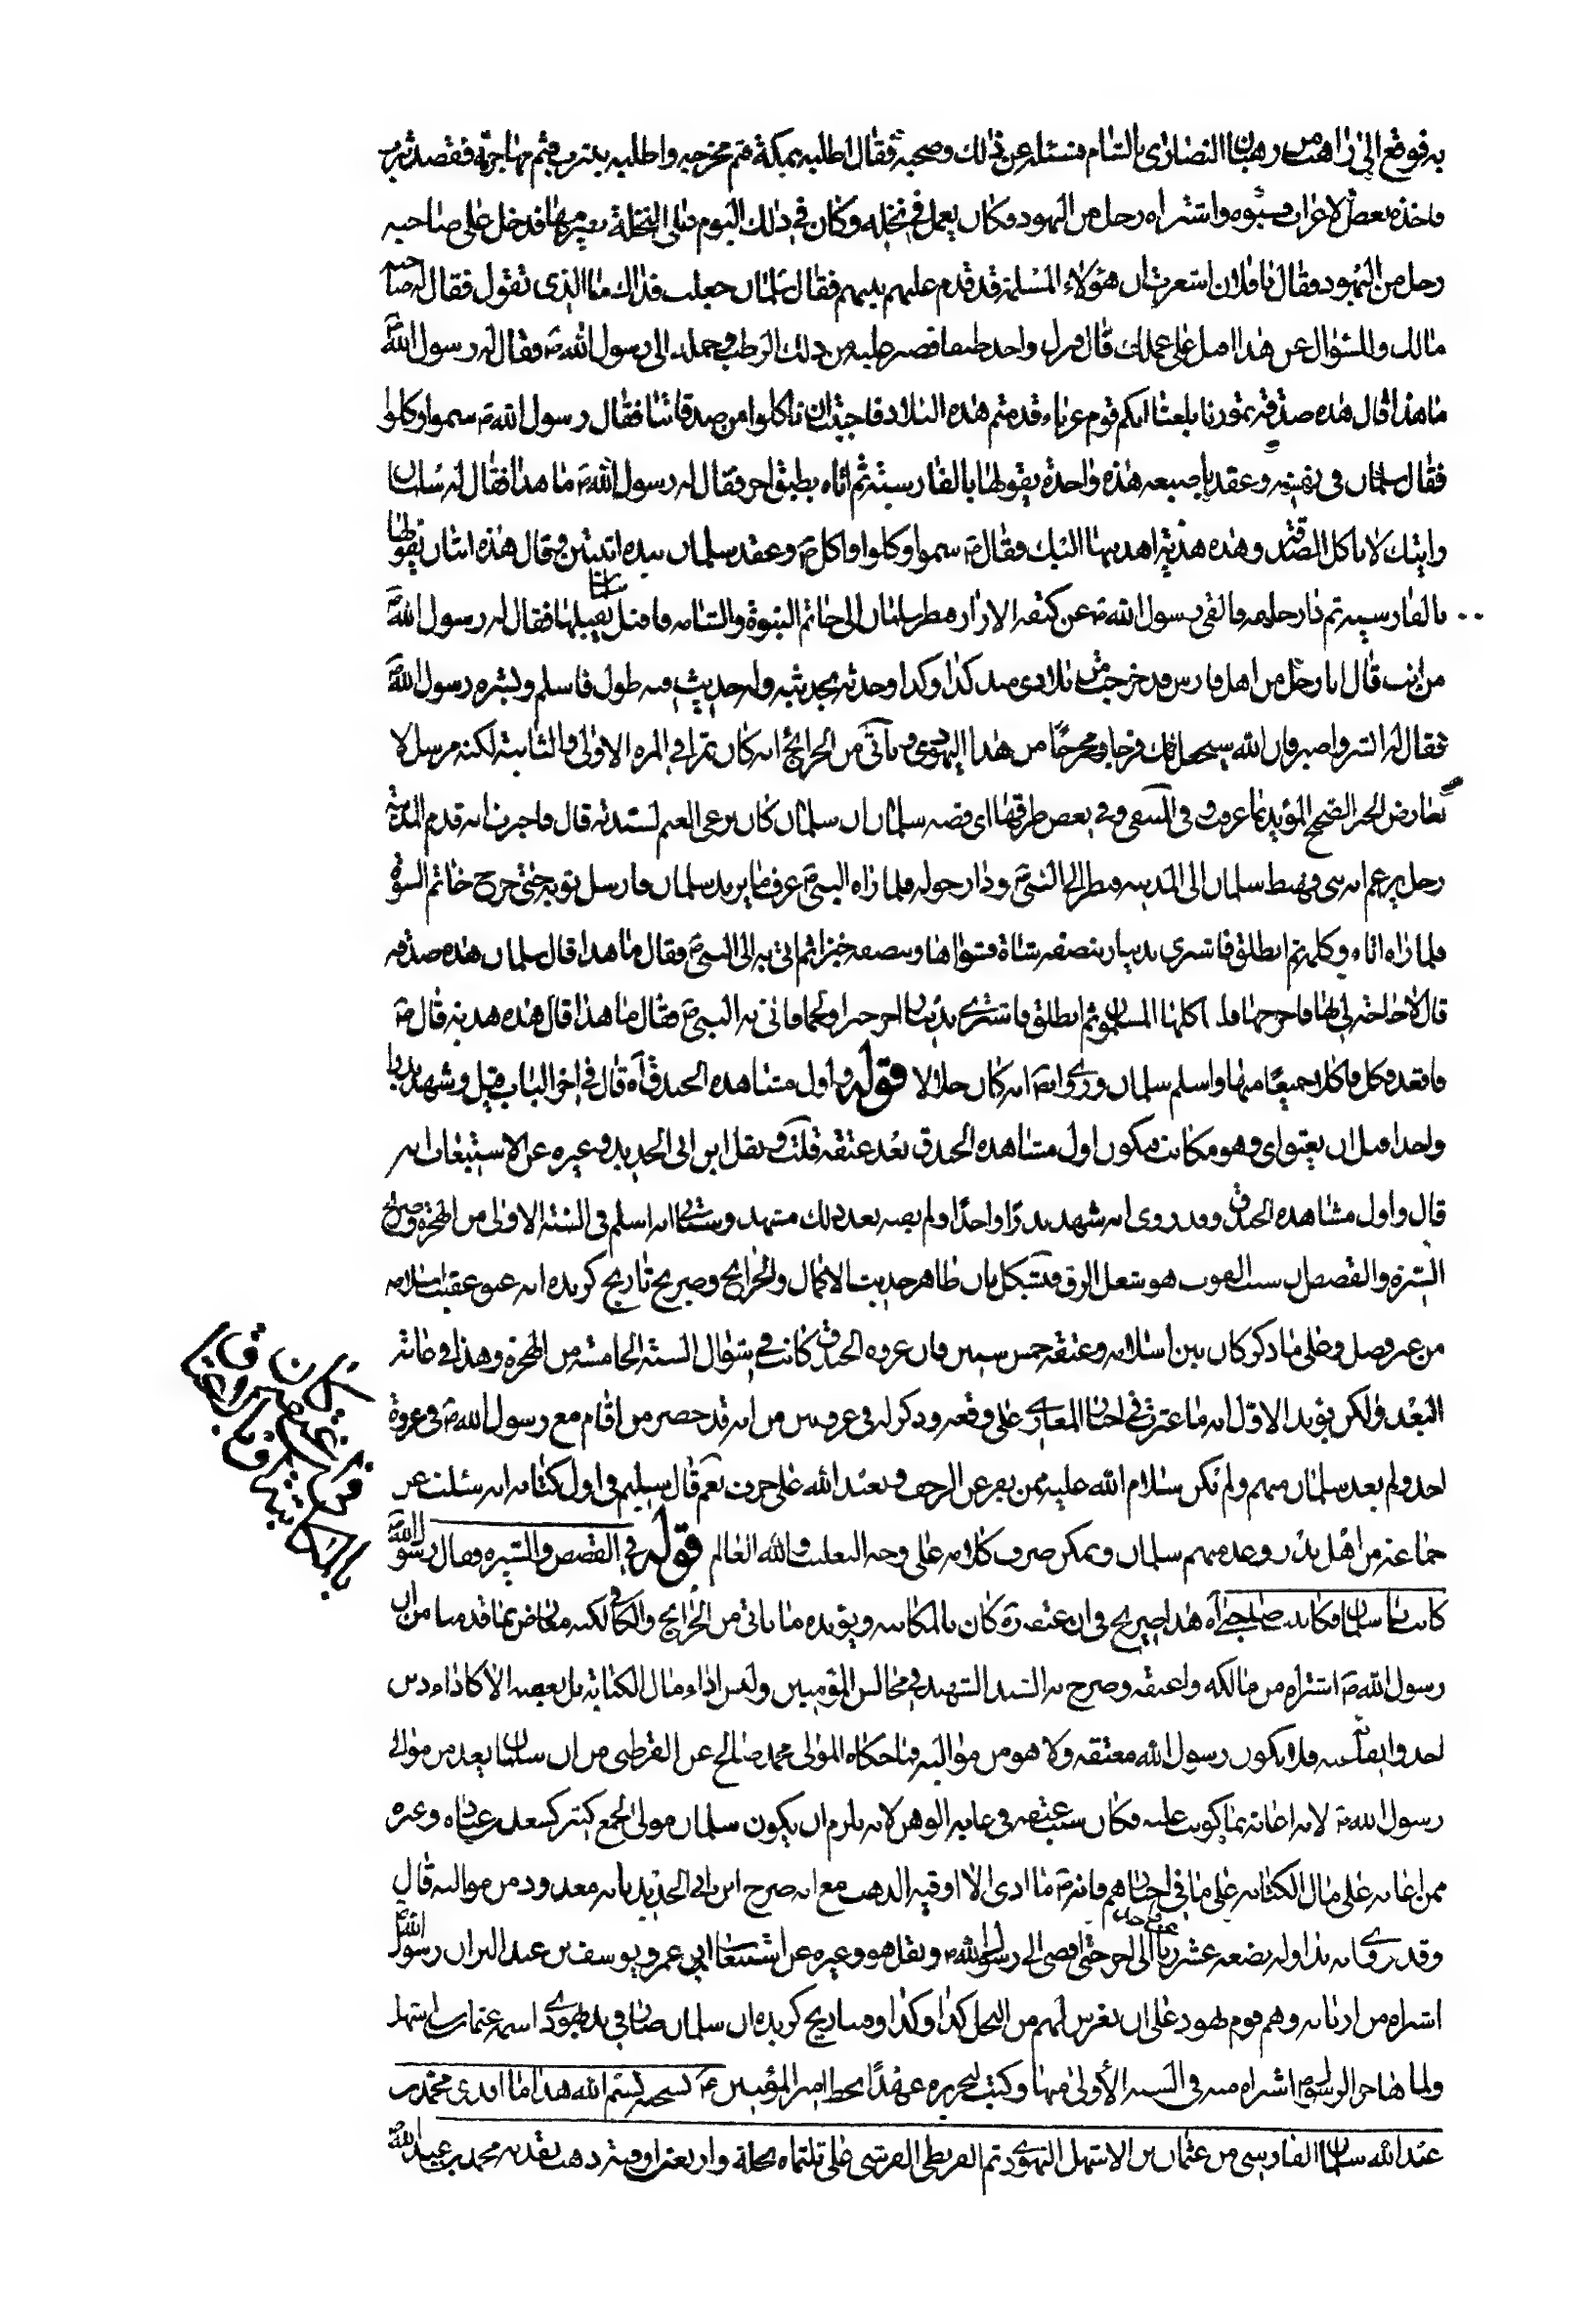 به فوقع إلى راهب من رهبان النصارى بالشام فسئله عن ذلك وصحبه فقال اطلبه بمكة فثم مخرجه واطلبه بيثرب فثم مهاجرته فقصد يثرب
فاخذه بعض الاعراب فسبوه واشتراه رجل من اليهود فكان يعمل في نخله وكان في ذلك اليوم على النخلة يصرمها فدخل على صاحبه
رجل من اليهود فقال يا فلان اشعرت ان هؤلاء المسلمة قد قدم عليهم نبيهم فقال سلمان جعلت فداك ما الذي تقول فقال له صاحبه
مالك وللسؤال عن هذا اقبل على عملك قال فنزل واخذ طبقا فصير عليه من ذلك الرطب وحمله الى رسول الله ص فقال له رسول الله ص
ما هذا قال هذه صدقة تمورنا بلغنا انكم قوم غرباء قدمتم هذه البلاد فاحببت ان تاكلوا من صدقاتنا فقال رسول الله ص سموا وكلوا
فقال سلمان في نفسه وعقد باصبعه هذه واحدة يقولها بالفارسية ثم اتاه بطبق آخر فقال له رسول الله ص ما هذا فقال له سلمان
رايتك لا تاكل الصدقة وهذه هدية اهديتها اليك فقال ص سموا وكلوا واكل ص وعقد سلمان بيده اثنتين وقال هذه اثنتان يقولها
بالفارسية ثم دار خلفه فالقى رسول الله ص عن كتفه الازار فنظر سلمان الى خاتم النبوة والشامة فاقبل يقبلها فقال له رسول الله ص
من انت قال انا رجل من اهل فارس قد خرجت من بلادي منذ كذا وكذا وحدثه بحديثه وله حديث فيه طول فاسلم وبشره رسول الله ص
فقال له ابشر واصبر فان الله سيجعل لك فرجا ومخرجا من هذا اليهودي و يأتي من الخرائج انه كان تمرا في المرة الاولى والثانية لكنه مرسل لا
يعارض الخبر الصحيح المؤيد بما عرفت وفي المنتقى وفي بعض طرقها اي قصة سلمان ان سلمان كان يرعى الغنم لسيدته قال فاخبر انه قدم المدينة
رجل يزعم انه نبي فهبط سلمان الى المدينة فنظر الى النبي ص ودار حوله فلما راه النبي ص عرف ما يريد سلمان فارسل ثوبه حتى خرج خاتم النبوة
فلما راه اتاه وكلمه ثم انطلق فاشترى بدينار بنصفه شاة فشواها وبنصفه خبزا ثم اتى به الى النبي ص فقال ما هذا قال سلمان هذه صدقة
قال لا حاجة لي بها فاخرجها فلياكلها المسلمون ثم انطلق فاشترى بدينار اخر خبزا ولحما فاتى به النبي ص فقال ما هذا قال هذه هدية قال ص
فاقعد وكل فاكلا جميعا منها واسلم سلمان وروى ايضا انه كان خلالا قوله واول مشاهده الخندق آه قال في اخر الباب قيل وشهد بدرا
واحدا قبل ان يعتق اي وهو مكاتب فيكون اول مشاهده الخندق بعد عتقه قلت و نقل ابن ابي الحديد وغيره عن الاستيعاب انه
قال واول مشاهده الخندق وقد روي انه شهد بدرا واحدا ولم يفته بعد ذلك مشهد وسياتي انه اسلم في السنة الاولى من الهجرة وصريح
السيرة والقصص ان سبب الفوت هو شغل الرق فيشكل بان ظاهر حديث الاكمال والخرايج وصريح تاريخ گزيده انه عتق عقيب اسلامه
من غير فصل وعلى ما ذكر كان بين اسلامه وعتقه خمس سنين فان غزوة الخندق كانت في شوال السنة الخامسة من الهجرة وهذا في غاية
البعد ولكن يؤيد الاول انه ما عثرت في اخبار المغازي على وقعة وذكر له في غزوتين من انه قد حصر من اقام مع رسول الله ص في غزوة
احد ولم يعد سلمان منهم ولم يكن سلام الله عليه ممن يفر عن الزحف و يعبد الله على حرف نعم قال سليم في اول كتابه انه سئلت عن
جماعة من اهل بدر وعد منهم سلمان ويمكن صرف كلامه على وجه التغليب والله العالم قوله في القصص والسيرة وقال رسول الله ص
كاتب يا سلمان فكاتبت صاحبي آه هذا صريح في ان عتقه ره كان بالمكاتبة ويؤيده ما ياتي من الخرايج والكافي لكنه معارض بما قدمنا من ان
رسول الله ص اشتراه من مالكه واعتقه وصرح به السيد الشهيد في مجالس المؤمنين وليس اداء مال الكتابة بل بعضه الا كاداء دين
احد وايفائه فلا يكون رسول الله معتقه ولا هو من مواليه فما حكاه المولى محمد صالح عن القرطبي من ان سلمان يعد من موالي
رسول الله ص لانه اعانه بما كوتب عليه فكان سبب عتقه في غاية الوهن لانه يلزم ان يكون سلمان مولى لجمع كثير كسعد بن عبادة وغيره
ممن اعانه على مال الكتابة على ما في اخبارهم فانه ص ما ادى الا اوقية الذهب مع انه صرح ابن ابي الحديد بانه معدود من مواليه قال
وقد روي انه تداوله بضعة عشر ربا من واحد الى اخر حتى افضى الى رسول الله ص و نقل هو وغيره عن استيعاب ابي عمرو يوسف بن عبد البر ان رسول الله ص
اشتراه من اربابه وهم قوم يهود على ان يغرس لهم من النخل كذا وكذا وفي تاريخ گزيده ان سلمان صار في يد يهودي اسمه عثمان بن اشهل
ولما هاجر الرسول ص اشتراه منه في السنة الاولى منها وكتب لتحريره عهدا بخط امير المؤمنين ع نسخته بسم الله هذا ما افدى محمد بن
عبد الله سلمان الفارسي من عثمان بن الاشهل اليهودي ثم القريظي القرشي على ثلثمائة نخلة واربعين اوقية ذهب بفديه محمد بن عبد الله ص